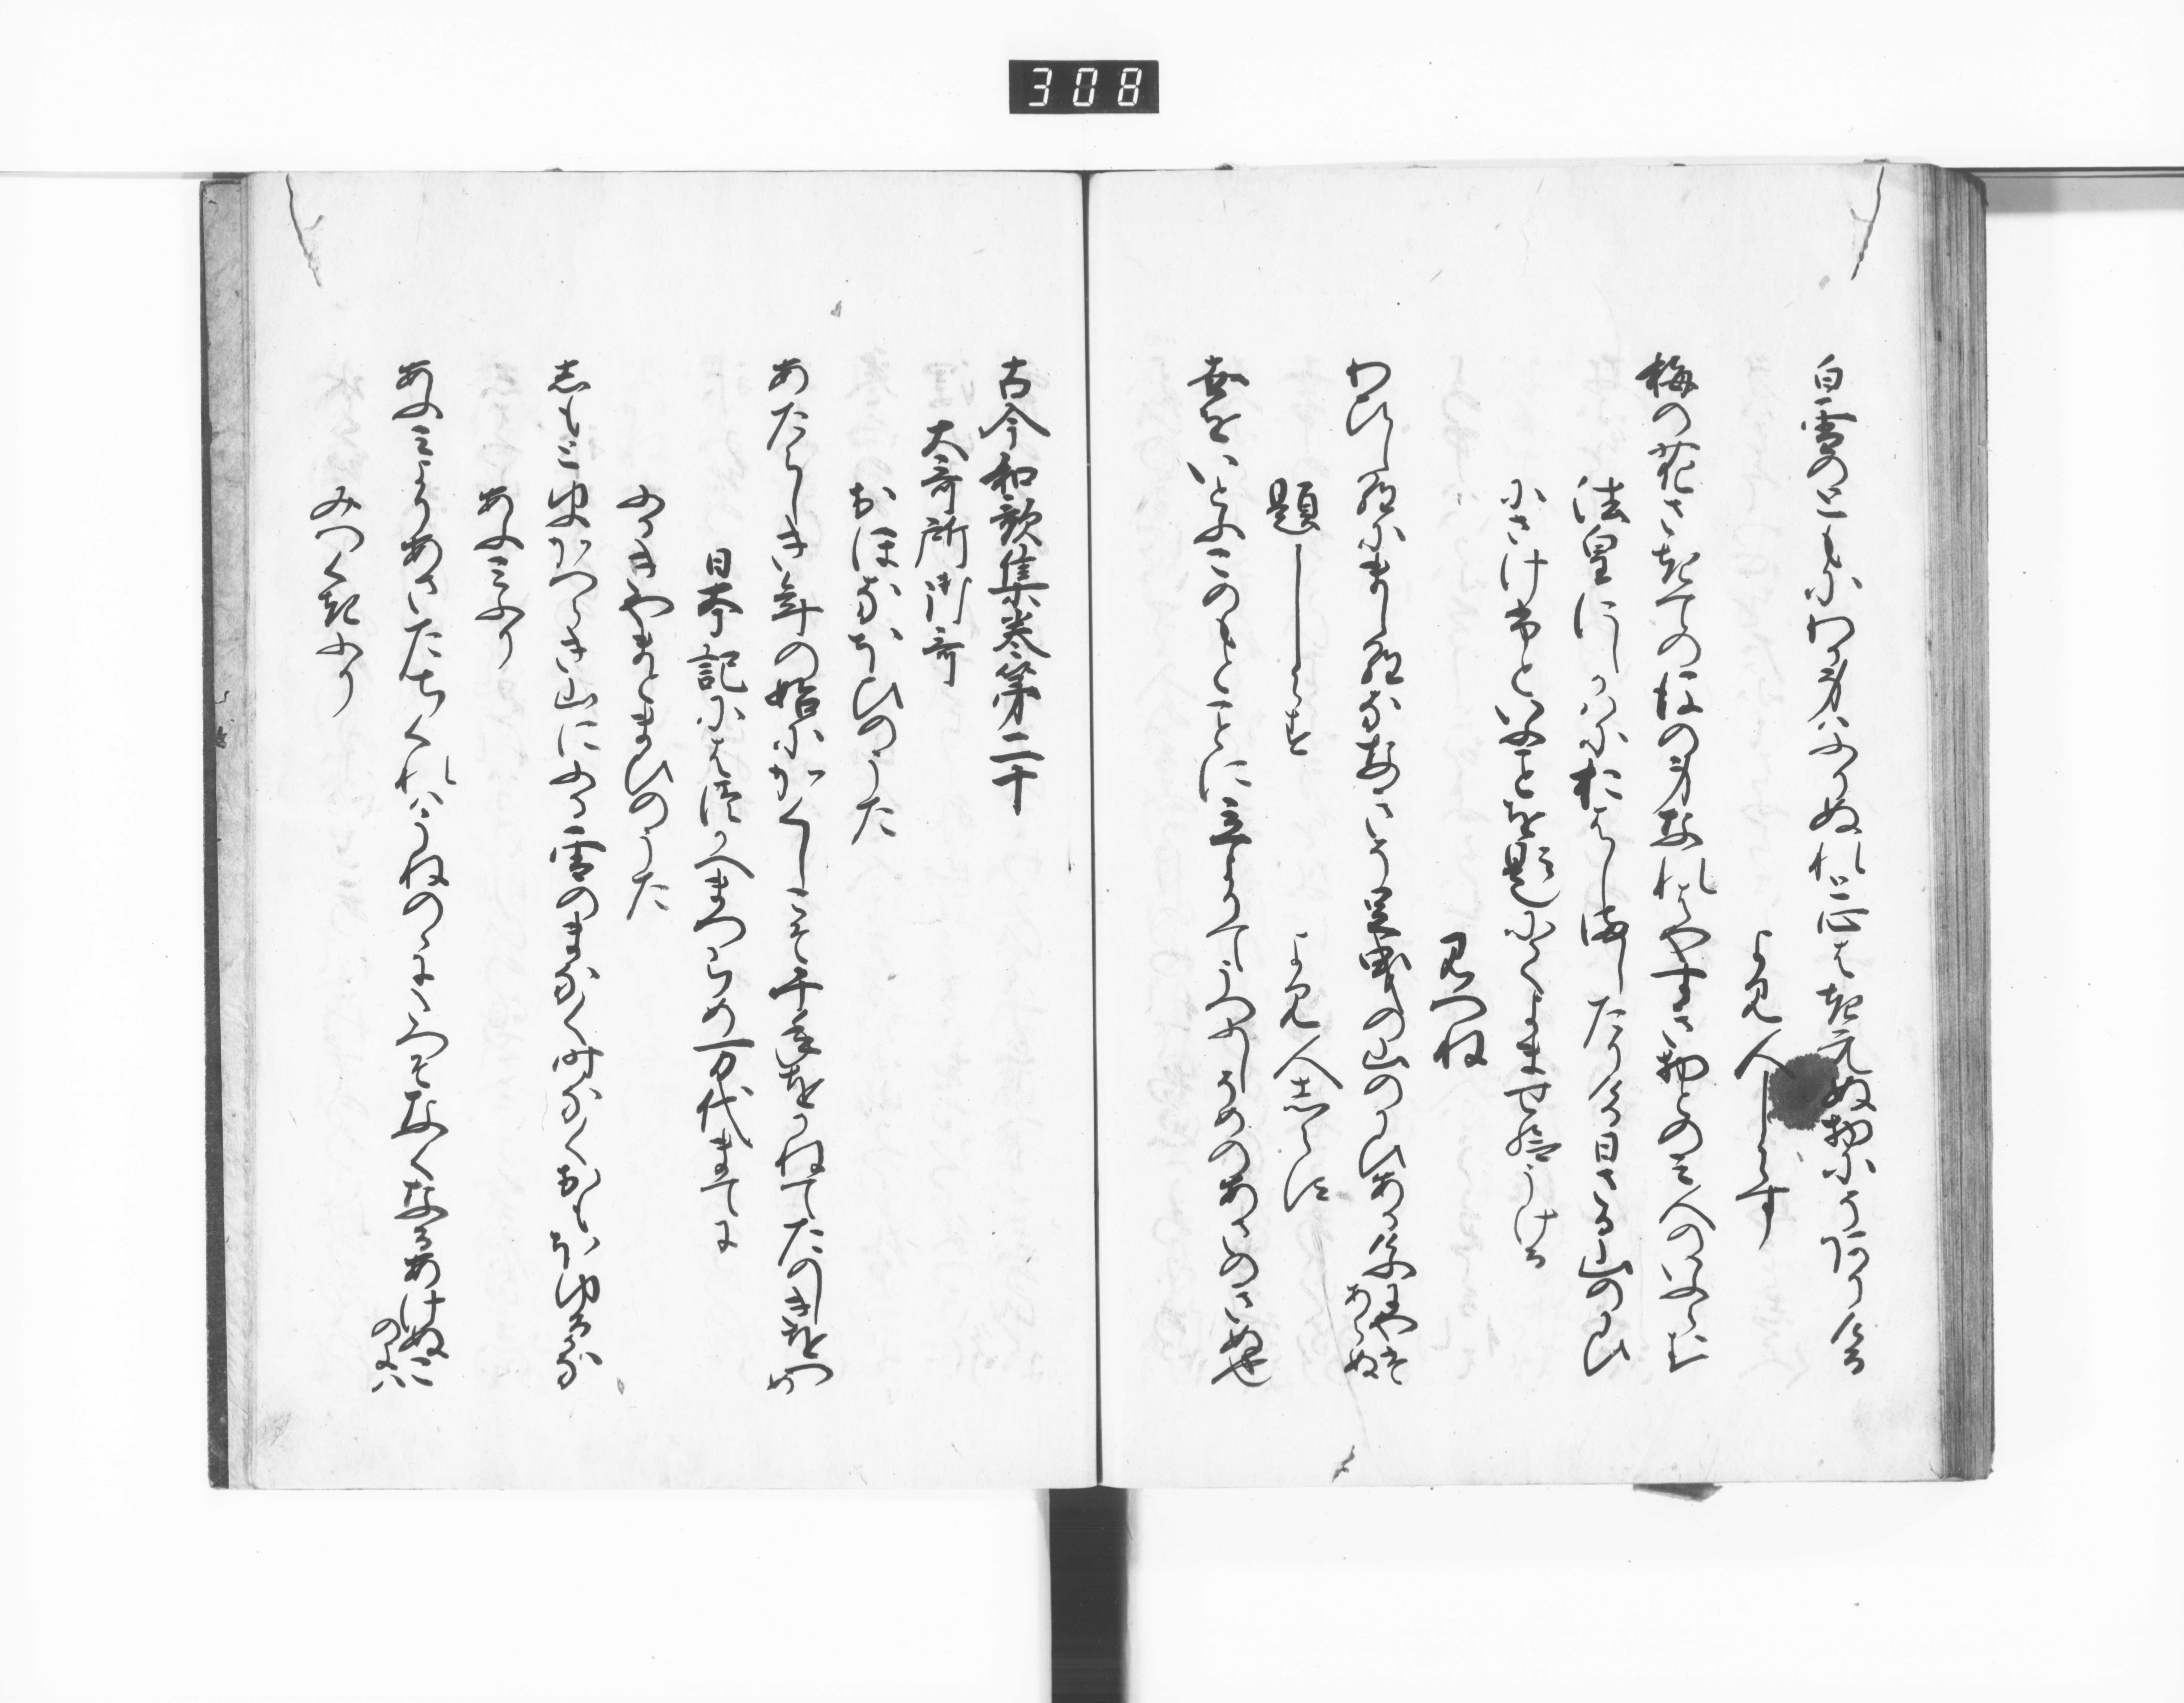 308
白雪のともにわか身はふりぬれと心はきえぬ物にそ有ける
よみ人しらす
梅の花さきてののちの身なれはやすき物とのみ人のいふらん
法皇にしかはにおはしましたりける日さる山のかひ
にさけふといふことを題にてよませ給うける
みつね
わひしらにましらななきそ足曳の山のかひある今日にやはあらぬ
題しらす
よみ人志らす
世をいとひこのもとことに立よりてうつふしそめのあさのきぬ也
古今和歌集巻第二十
大哥所御哥
おほなほひのうた
あたらしき年の始にかくしこそ千年をかねてたのしきをつめ
日本記にはつかへまつらめ万代まてに
ふるきやまとまひのうた
志もとゆふかつらき山にふる雪のまなく時なくおもほゆるかな
あふみふり
あふみよりあさたちくれはうねのゝにたつそなくなるあけぬこのよは
みつくきふり